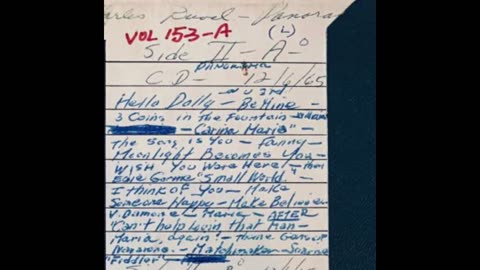 Charles Ruval - Panora
VOL 153-A (L)
Side II - A -
PANORAMA
CD - 12/6/65
Hello Dolly - Be Mine -
3 Coins in the Fountain -
- Carina Marie" -
The Song is You - Fanny -
Moonlight Becomes You -
Wish You Were Here! -
Edie Gorme "Small World." -
I think of You - Make
Someone Happy - Make Believe -
V. Damone - Maria - AFTER
"Can't help Lovin that Man -
Maria, again! -
- Matchmaker -
"Fiddler"